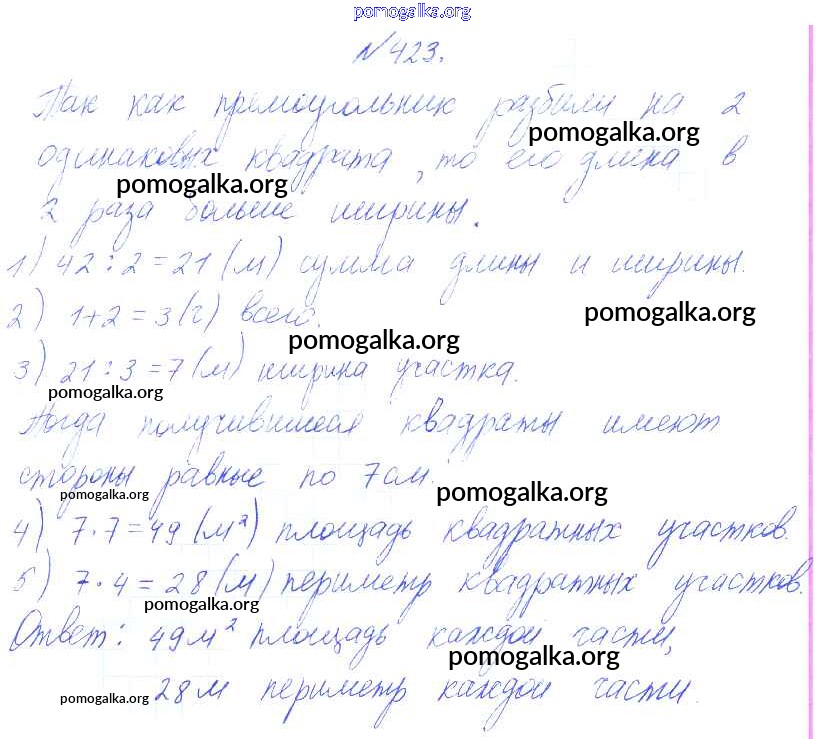 pomogalka.org
№423.
Так как прямоугольник разбили на 2
pomogalka.org
одинаковых квадрата, то его длина в
pomogalka.org
2 раза больше ширины.
1) 42:2=21 (м) сумма длины и ширины.
2) 1+2=3 (ч) всего.
pomogalka.org
pomogalka.org
3) 21:3=7 (м) ширина участка.
pomogalka.org
Тогда получившиеся квадраты имеют
стороны равные по 7см.
pomogalka.org
pomogalka.org
4) 7·7=49 (м²) площадь квадратных участков.
5) 7·4=28 (м) периметр квадратных участков.
pomogalka.org
Ответ: 49м² площадь каждой части,
pomogalka.org
28м периметр каждой части.
pomogalka.org